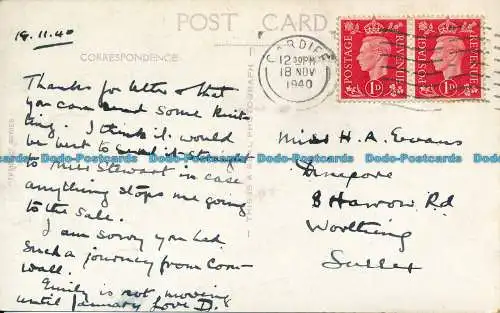 POST CARD
18.11.40
CORRESPONDENCE
Thanks for letter & that
you can send some knit-
ting. I think it would
be best to send it straight
to Miss Stewart in case
anything stops me going
to the sale.
I am sorry you had
such a journey from Corn-
wall.
Emily is not moving
until January Love D.
THIS IS A REAL PHOTOGRAPH
CARDIFF
12 30 PM
18 NOV
1940
POSTAGE
REVENUE
1D
POSTAGE
REVENUE
1D
Miss H. A. Evans
Dinapore
8 Harrow Rd
Worthing
Sussex
Dodo-Postcards Dodo-Postcards Dodo-Postcards Dodo-Postcards Dodo-Postcards